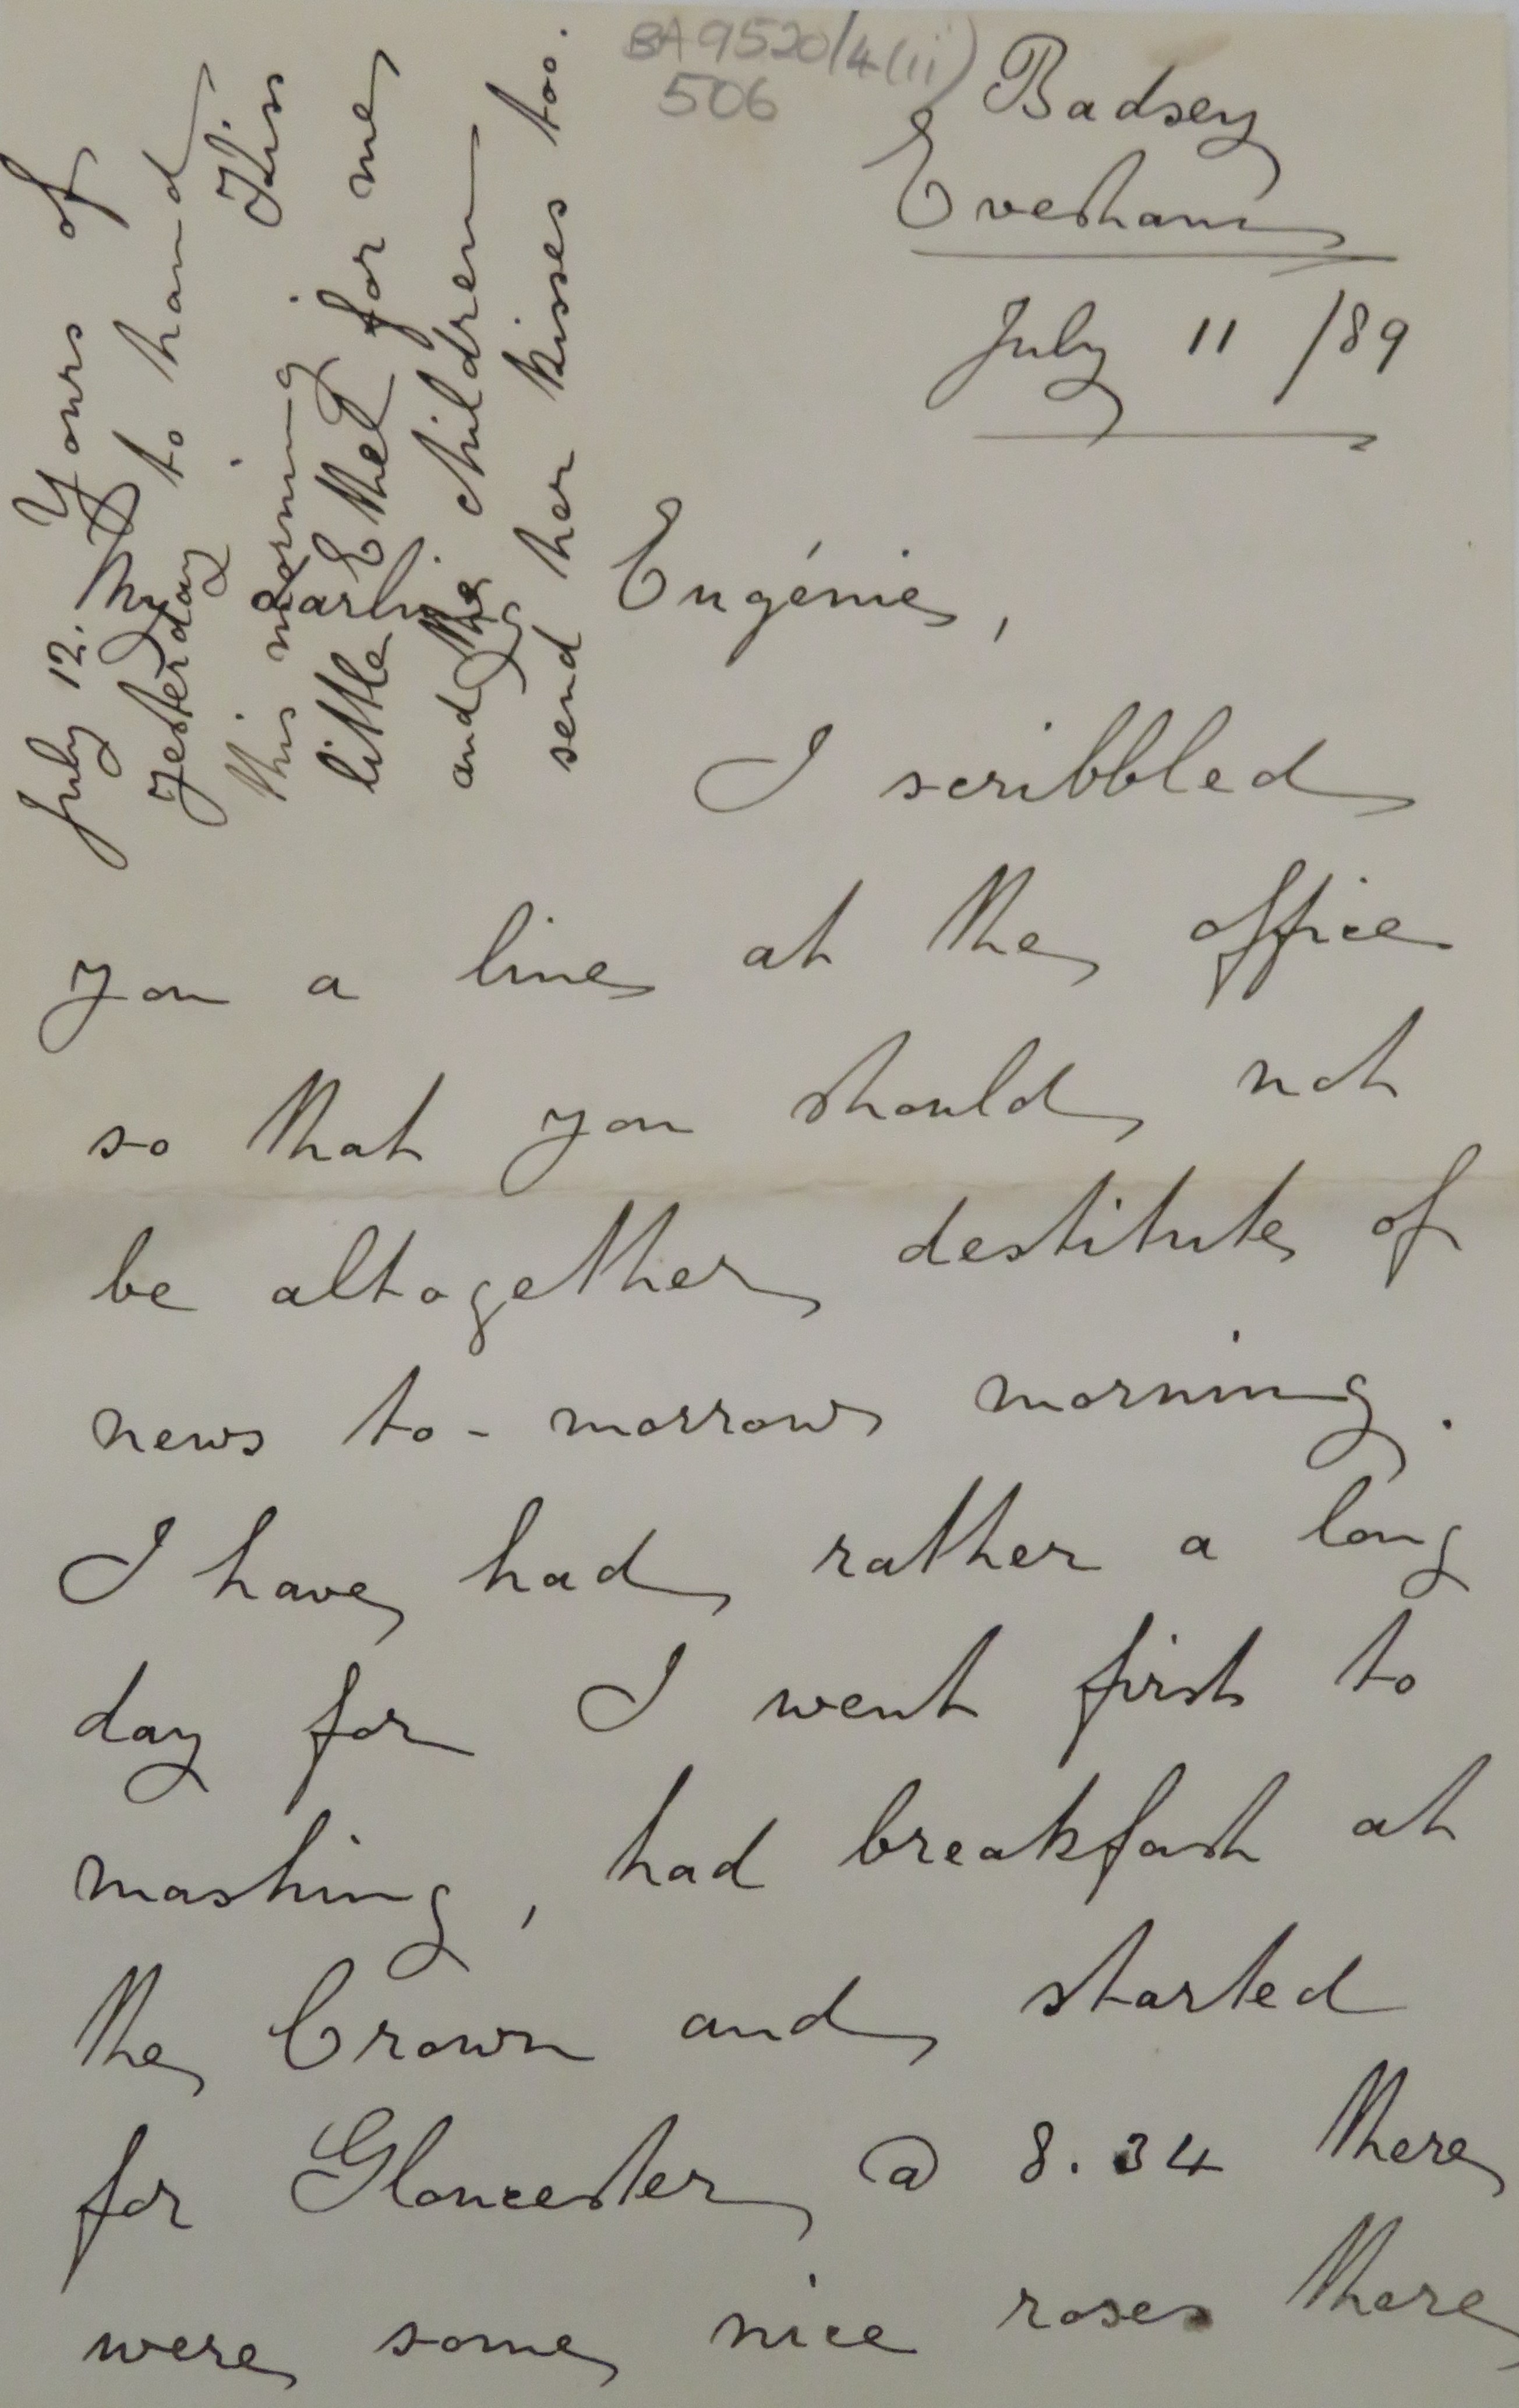 BA9520/4(ii)
506
Badsey
Evesham
July 11 /89
My darling Eugénie,
I scribbled
you a line at the office
so that you should not
be altogether destitute of
news to-morrow morning.
I have had rather a long
day for I went first to
mashing, had breakfast at
the Crown and started
for Gloucester @ 8.34 there
were some nice roses there
July 12. Yours of
yesterday to hand
this morning. Kiss
little Ethel for me
and the children
send her kisses too.